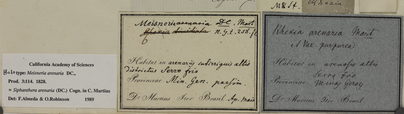 California Academy of Sciences
Holotype: Meisneria arenaria DC.,
Prod. 3:114. 1828.
= Siphanthera arenaria (DC.) Cogn. in C. Martius
Det: F. Almeda & O. Robinson 1989
Meisneria arenaria DC. Mart
Habitat in arenosis subirriguis altis
districtus Serro frio
Provinciae Min. Gen.
Dr Martius Iter Brasil.
Rhexia arenaria Mart
Habitat in arenosis altis
Serro frio
Provinciae Minas Geraes
Dr Martius Iter Brasil.